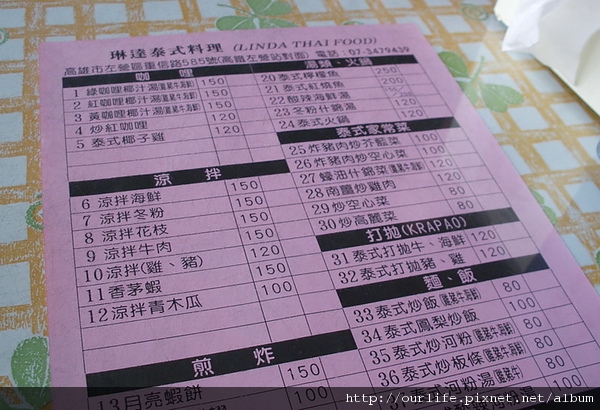 琳達泰式料理 (LINDA THAI FOOD)
高雄市左營區重信路585號(高鐵左營站對面) 電話：07-3479439
咖 哩
1 綠咖哩椰汁湯(雞豬牛海鮮) 150
2 紅咖哩椰汁湯(雞豬牛海鮮) 150
3 黃咖哩椰汁湯(雞豬牛海鮮) 150
4 炒紅咖哩 120
5 泰式椰子雞 120
涼 拌
6 涼拌海鮮 150
7 涼拌冬粉 150
8 涼拌花枝 150
9 涼拌牛肉 120
10 涼拌(雞、豬) 100
11 香茅蝦 150
12 涼拌青木瓜 100
煎 炸
13 月亮蝦餅 150
100
湯類、火鍋
20 泰式檸檬魚 250
21 泰式紅燒魚
22 酸辣海鮮湯
23 冬粉什錦湯
24 泰式火鍋
泰式家常菜
25 炸豬肉炒芥藍菜 100
26 炸豬肉炒空心菜 100
27 蠔油什錦菜(雞豬牛海鮮) 120
28 南薑炒雞肉 120
29 炒空心菜 80
30 炒高麗菜 80
打拋(KRAPAO)
31 泰式打拋牛、海鮮 120
32 泰式打拋豬、雞 120
麵、飯
33 泰式炒飯(雞豬牛海鮮) 100
34 泰式鳳梨炒飯 100
35 泰式炒河粉(雞豬牛海鮮) 80
36 泰式炒板條(雞豬牛海鮮) 80
泰式河粉湯(雞豬牛) 80
100
http://ourlife.pixnet.net/album